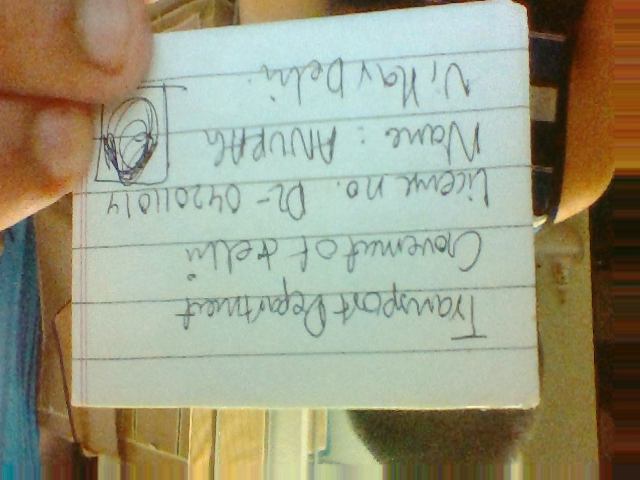 Transport Department
Goverment of delhi
License no. DL-042011014
Name: ANURAG
Delhi